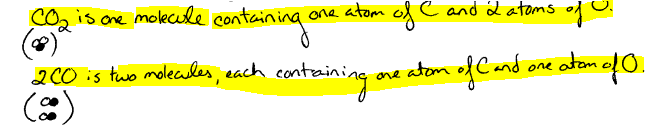 CO₂ is one molecule containing one atom of C and 2 atoms of O.
2CO is two molecules, each containing one atom of C and one atom of O.